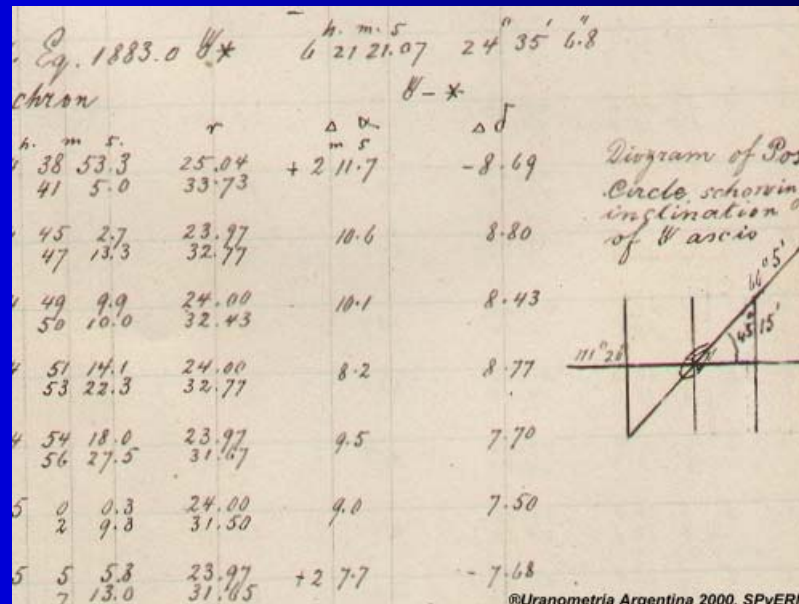 Eq. 1883.0 ☿* 6 21 21.07 24° 35' 6.8
h. m. s
chron ☿-*
h. m s. r Δ α Δ δ
m s
38 53.3 25.04 + 2 11.7 - 8.69
41 5.0 33.73
45 2.7 23.97 10.6 8.80
47 13.3 32.77
49 9.9 24.00 10.1 8.43
50 10.0 32.43
4 51 14.1 24.00 8.2 8.77
53 22.3 32.77
4 54 18.0 23.97 9.5 7.70
56 27.5 31.67
5 0 0.3 24.00 9.0 7.50
2 9.3 31.50
5 5 5.3 23.97 + 2 7.7 - 7.68
7 13.0 31.65
Diagram of Pos
Circle schowing
inclination
of ☿ ascis
66° 5'
45° 15'
111° 20'
®Uranometria Argentina 2000, SPyERI